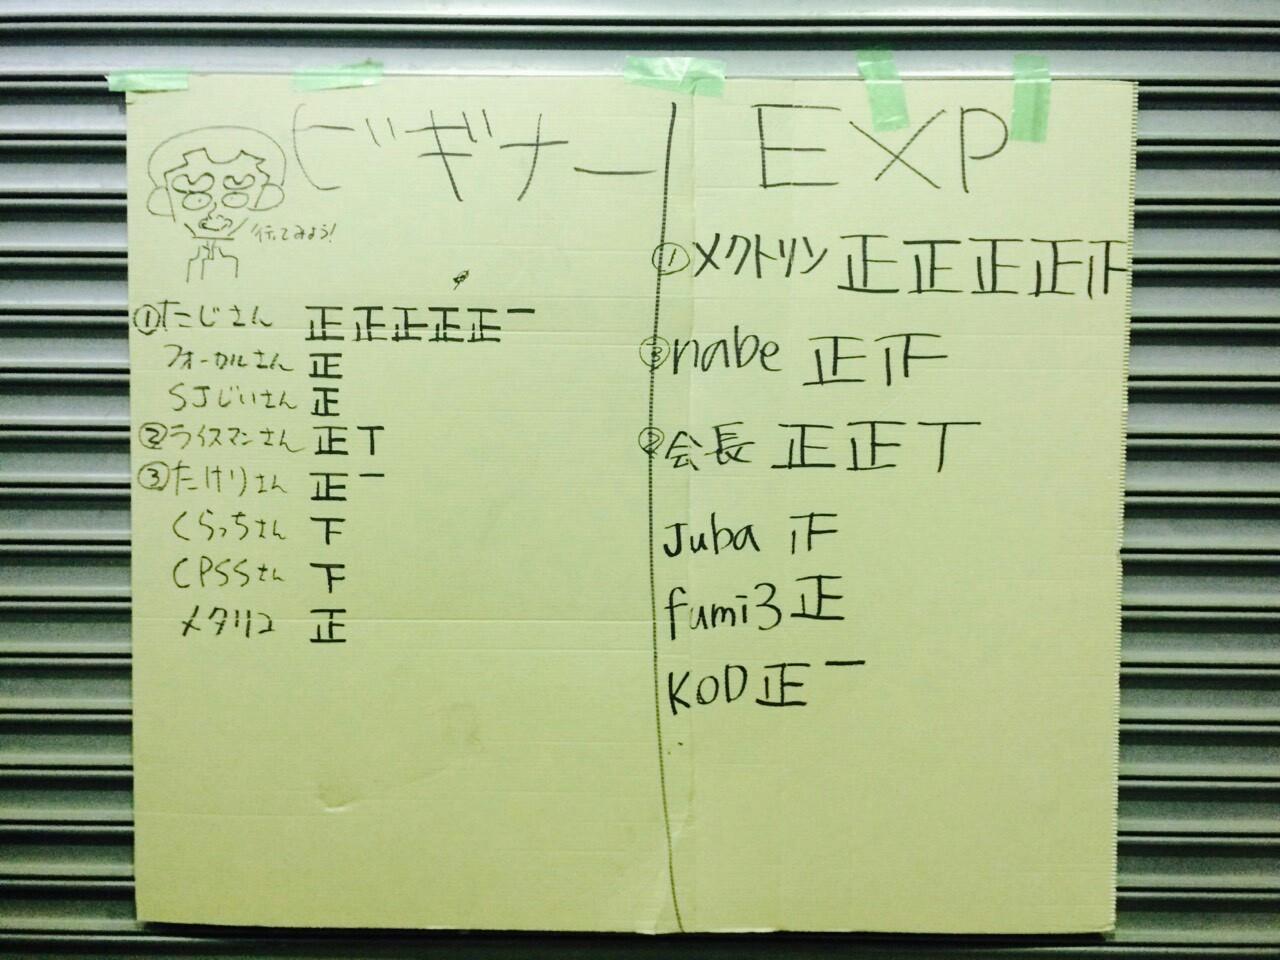 ビギナー
行ってみよう!
①たじさん 正正正正正一
フォーカルさん 正
SJじいさん 正
②ライスマンさん 正T
③たけりさん 正一
くらっちさん 下
CPSSさん 下
メタリコ 正
EXP
①メクトリン 正正正正正
③nabe 正正
②会長 正正T
Juba 正
fumi3 正
KOD 正一